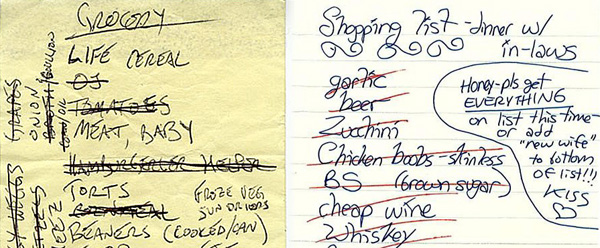 GROCERY
LIFE CEREAL
OJ
TOMATOES
MEAT, BABY
HAMBURGERLER HELPER
TORTS
FROZE VEG
SUN DRIODS
BEANERS (COOKED/CAN)
GRAPES
ONION
BROTH/BOULLION
Shopping list - dinner w/
in-laws
garlic
beer
Zuchini
Chicken boobs - skinless
BS (brown sugar)
cheap wine
Whiskey
Honey - pls get
EVERYTHING
on list this time -
or add
"new wife"
to bottom
of list!!!
KISS